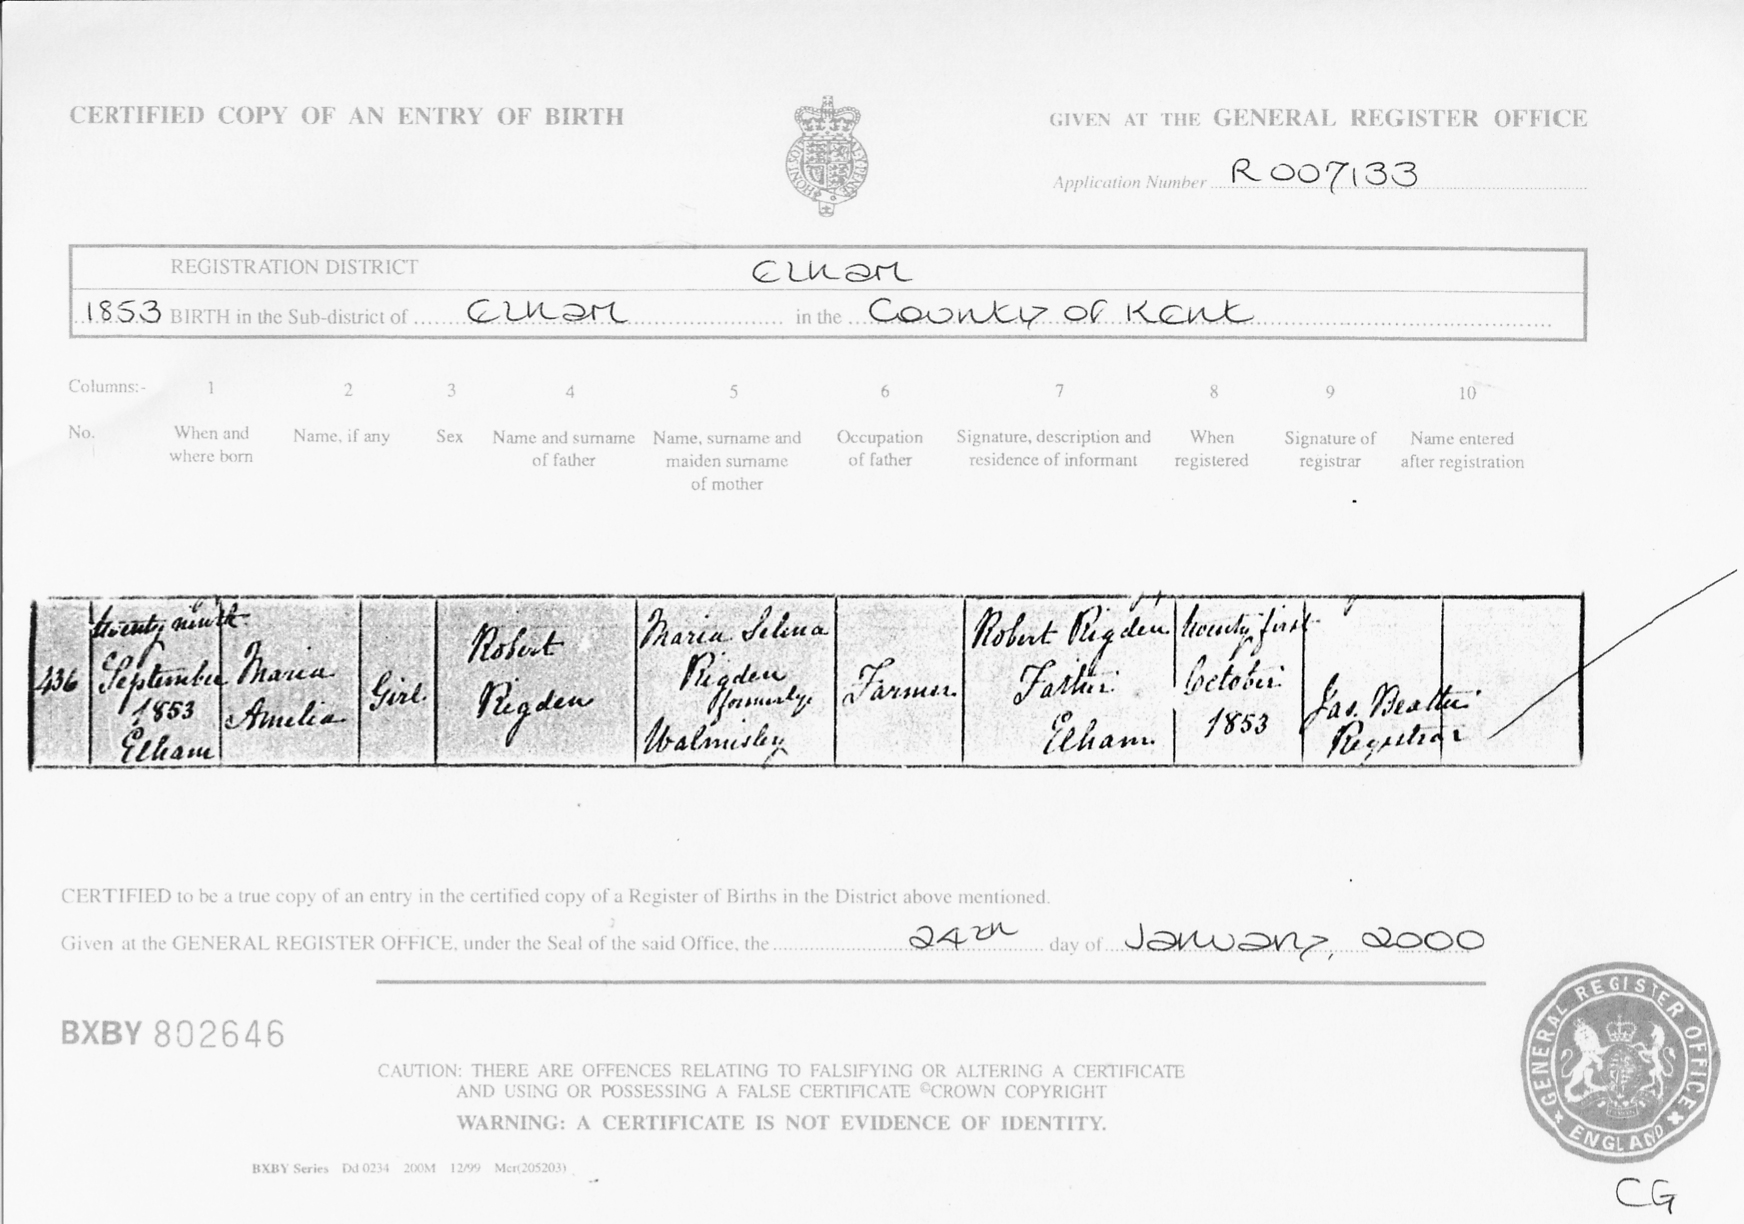 CERTIFIED COPY OF AN ENTRY OF BIRTH
GIVEN AT THE GENERAL REGISTER OFFICE
Application Number R007133
REGISTRATION DISTRICT Elham
1853 BIRTH in the Sub-district of Elham in the County of Kent
Columns:- 1 2 3 4 5 6 7 8 9 10
No.
When and
where born
Name, if any
Sex
Name and surname
of father
Name, surname and
maiden surname
of mother
Occupation
of father
Signature, description and
residence of informant
When
registered
Signature of
registrar
Name entered
after registration
436
twenty ninth
September
1853
Elham
Maria
Amelia
Girl
Robert
Rigden
Maria Selina
Rigden
formerly
Walmisley
Farmer
Robert Rigden
Father
Elham
twenty first
October
1853
Jas. Beattie
Registrar
CERTIFIED to be a true copy of an entry in the certified copy of a Register of Births in the District above mentioned.
Given at the GENERAL REGISTER OFFICE, under the Seal of the said Office, the 24th day of January, 2000
BXBY 802646
CAUTION: THERE ARE OFFENCES RELATING TO FALSIFYING OR ALTERING A CERTIFICATE
AND USING OR POSSESSING A FALSE CERTIFICATE ©CROWN COPYRIGHT
WARNING: A CERTIFICATE IS NOT EVIDENCE OF IDENTITY.
BXBY Series Dd 0234 200M 12/99 Mcr(205203)
GENERAL REGISTER OFFICE
ENGLAND
CG